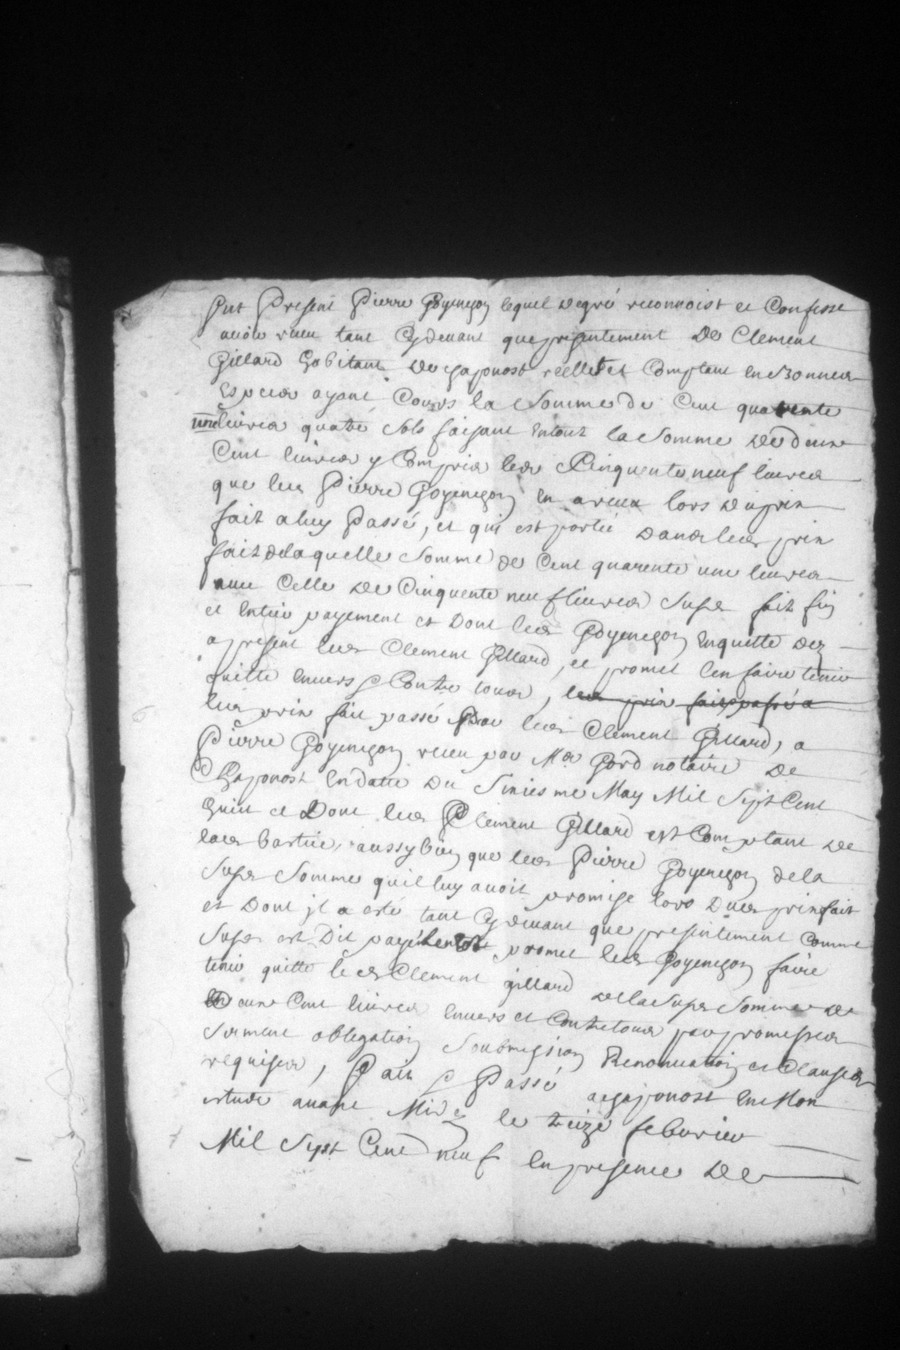 fut Present Pierre Goyenezon lequel de gré reconnoist et Confesse
avoir receu tant Cydevant que presentement De Clement
Gillard habitant De chaponost reellet et Comptant en Bonnes
Especes ayant Cours la Somme de Cent quarente
une livres quatre sols faisant entout la Somme de deux
Cent livres y Compris les Cinquente neuf livres
que led Pierre Goyenezon en a receu lors du prix
fait a luy Passé, et qui est porté dans led prix
fait de laquelle Somme de Cent quarente une livres
avec Celle De Cinquente neuf livres Susd fait fin
et Entier payement et Dont led Goyenezon Enquitte dez
a present led Clement Gillard, et promet l'en faire tenir
quitte envers & Contre tous, led prix fait passé a
led prix fait passé Par led Clement Gillard, a
Pierre Goyenezon receu par Me Gord notaire De
Chaponost En datte Du Sixiesme May Mil Sept Cent
huict et Dont led Clement Gillard est Comptant De
lad bastie, aussy bien que led Pierre Goyenezon de la
Susd Somme qu'il luy avoit promise lors dud prixfait
et Dont jl a esté tant Cydevant que presentement Comme
Susd est Dit payé promet led Goyenezon faire
tenir quitte led Clement gillard de la Susd Somme de
deux Cent livres envers et Contre tous par promesses
Serment obligation Soubmission Renonciation et Clauses
requises, Fait & Passé a chaponost En Mon
estude avant Midy le treize febvrier
Mil Sept Cent neuf En presence De